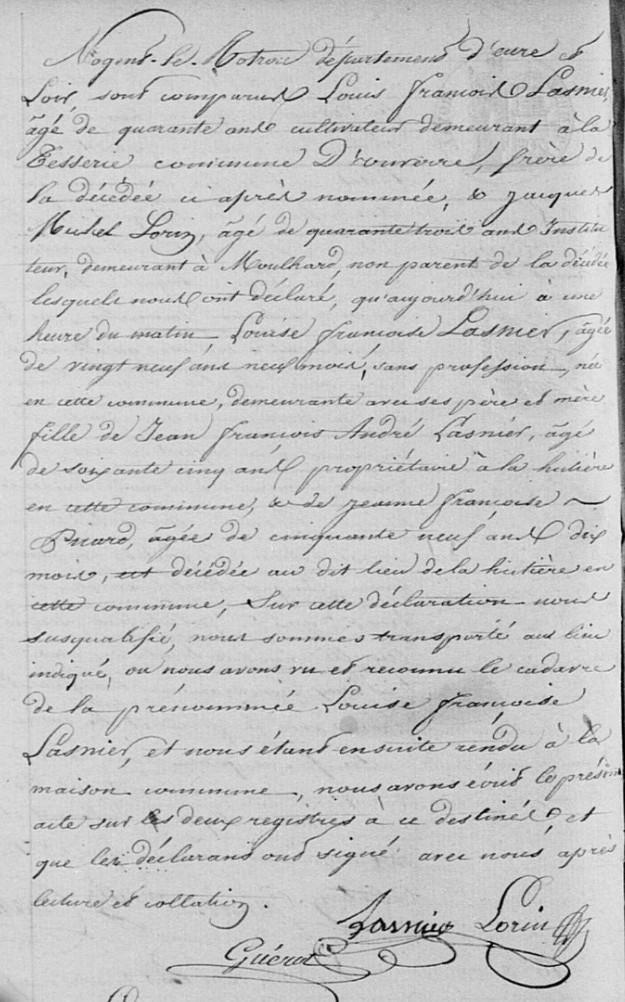 Nogent-le-Rotrou département d'eure et
Loir, sont comparus Louis François Lasnier,
âgé de quarante ans cultivateur demeurant à la
Tesserie commune D'ouverre, frère de
la décédée ci après nommée, & Jacques
Michel Lorin, âgé de quarante trois ans Institu
teur, demeurant à Moulhard, non parent de la décédée
lesquels nous ont déclaré, qu'aujourd'hui à une
heure du matin, Louise françoise Lasnier, âgée
de vingt neuf ans neuf mois, sans profession, née
en cette commune, demeurante avec ses père et mère
fille de Jean François André Lasnier, âgé
de soixante cinq ans propriétaire à la hutière
en cette commune, & de jeanne françoise
âgée de cinquante neuf ans dix
mois, est décédée au dit lieu de la hutière en
cette commune, Sur cette déclaration nous
susqualifié, nous sommes transporté au lieu
indiqué, ou nous avons vu et reconnu le cadavre
de la prénommée Louise françoise
Lasnier, et nous étant ensuite rendu à la
maison commune, nous avons écrit le présent
acte sur les deux registres à ce destinés et
que les déclarans ont signé avec nous, après
lecture et collation.
Lasnier Lorin
Guérin